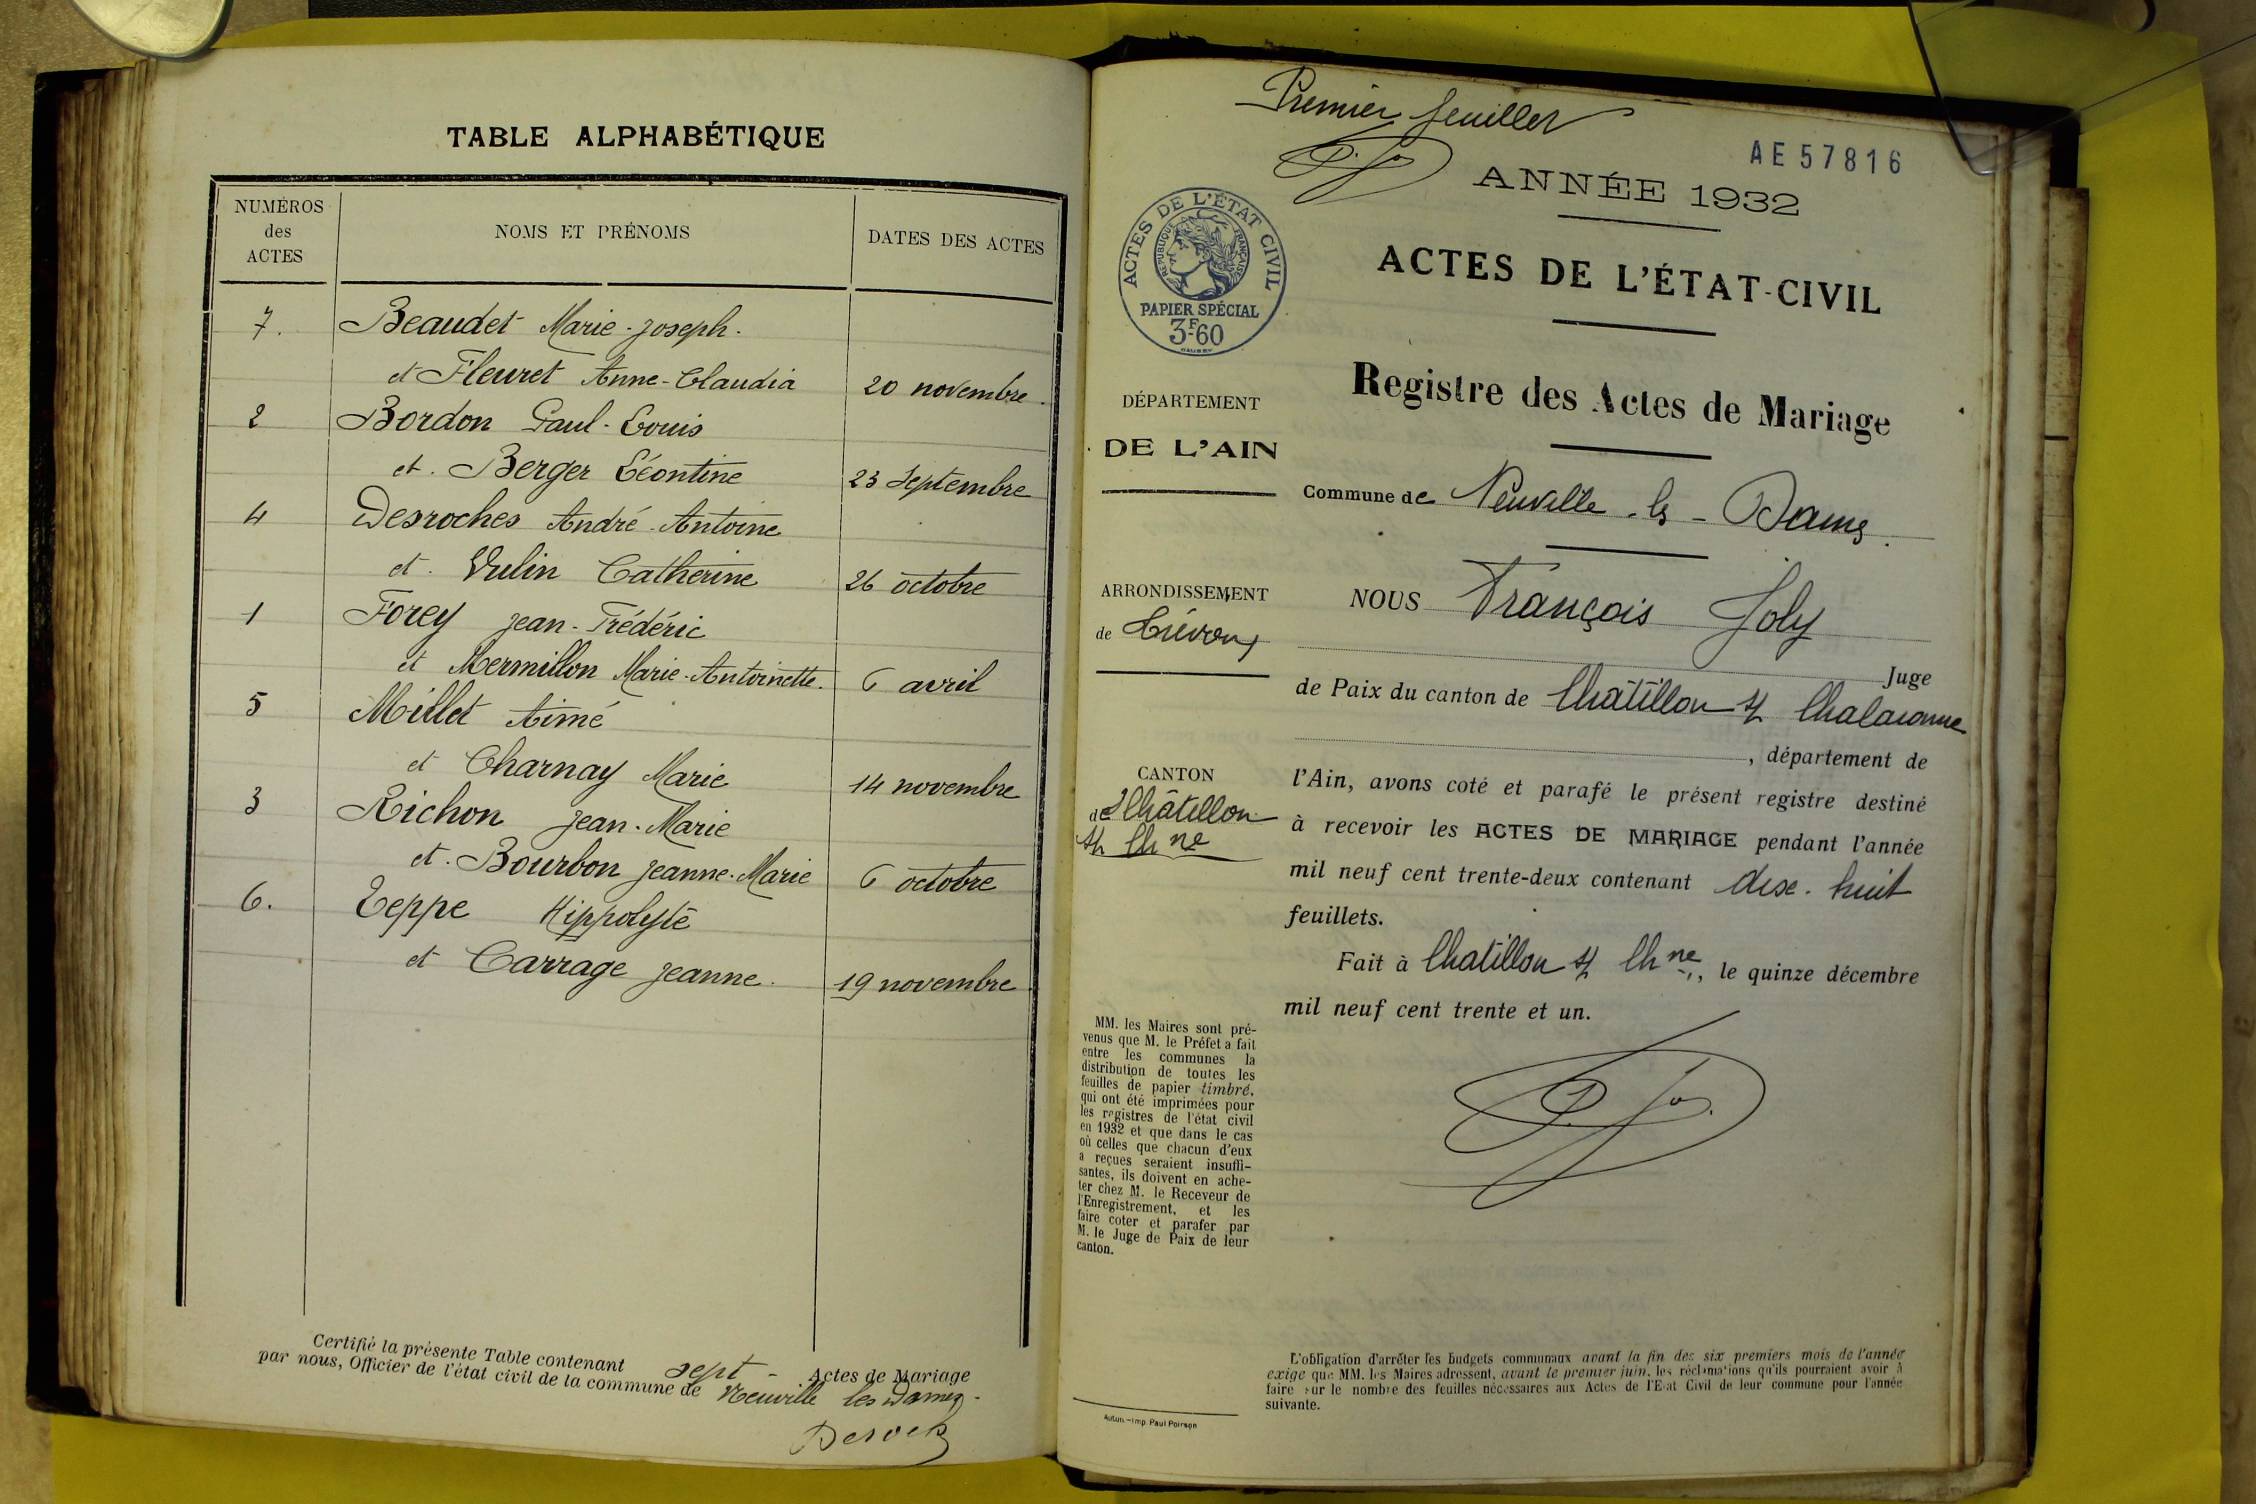 TABLE ALPHABÉTIQUE
NUMÉROS
des
ACTES
NOMS ET PRÉNOMS
DATES DES ACTES
7. Beaudet Marie-Joseph.
et Fleuret Anne-Claudia 20 novembre.
2 Bordon Paul-Louis
et. Berger Léontine 23 Septembre
4 Desroches André-Antoine
et. Vulin Catherine 26 octobre
1 Forey Jean-Frédéric
et Mermillon Marie-Antoinette. 6 avril
5 Millet Aimé
et Charnay Marie 14 novembre
3 Richon Jean-Marie
et. Bourbon Jeanne-Marie 6 octobre
6. Teppe Hippolyte
et Carrage Jeanne. 19 novembre
Certifié la présente Table contenant sept - Actes de Mariage
par nous, Officier de l'état civil de la commune de Neuville les Dames -
Premier feuillet
AE57816
ANNÉE 1932
ACTES DE L'ÉTAT CIVIL
RÉPUBLIQUE FRANÇAISE
PAPIER SPÉCIAL
3F-60
ACTES DE L'ÉTAT-CIVIL
Registre des Actes de Mariage
DÉPARTEMENT
DE L'AIN
Commune de Neuville-les-Dames.
ARRONDISSEMENT
de Trévoux
NOUS François Joly
Juge
de Paix du canton de Châtillon s/ Chalaronne
, département de
CANTON
de Châtillon
s/ Chne
l'Ain, avons coté et parafé le présent registre destiné
à recevoir les ACTES DE MARIAGE pendant l'année
mil neuf cent trente-deux contenant dix-huit
feuillets.
Fait à Chatillon s/ Chne, le quinze décembre
mil neuf cent trente et un.
MM. les Maires sont pré-
venus que M. le Préfet a fait
entre les communes la
distribution de toutes les
feuilles de papier timbré,
qui ont été imprimées pour
les registres de l'état civil
en 1932 et que dans le cas
où celles que chacun d'eux
a reçues seraient insuffi-
santes, ils doivent en ache-
ter chez M. le Receveur de
l'Enregistrement, et les
faire coter et parafer par
M. le Juge de Paix de leur
canton.
L'obligation d'arrêter les budgets communaux avant la fin des six premiers mois de l'année
exige que MM. les Maires adressent, avant le premier juin, les réclamations qu'ils pourraient avoir à
faire sur le nombre des feuilles nécessaires aux Actes de l'Etat Civil de leur commune pour l'année
suivante.
Autun.—Imp. Paul Poirson